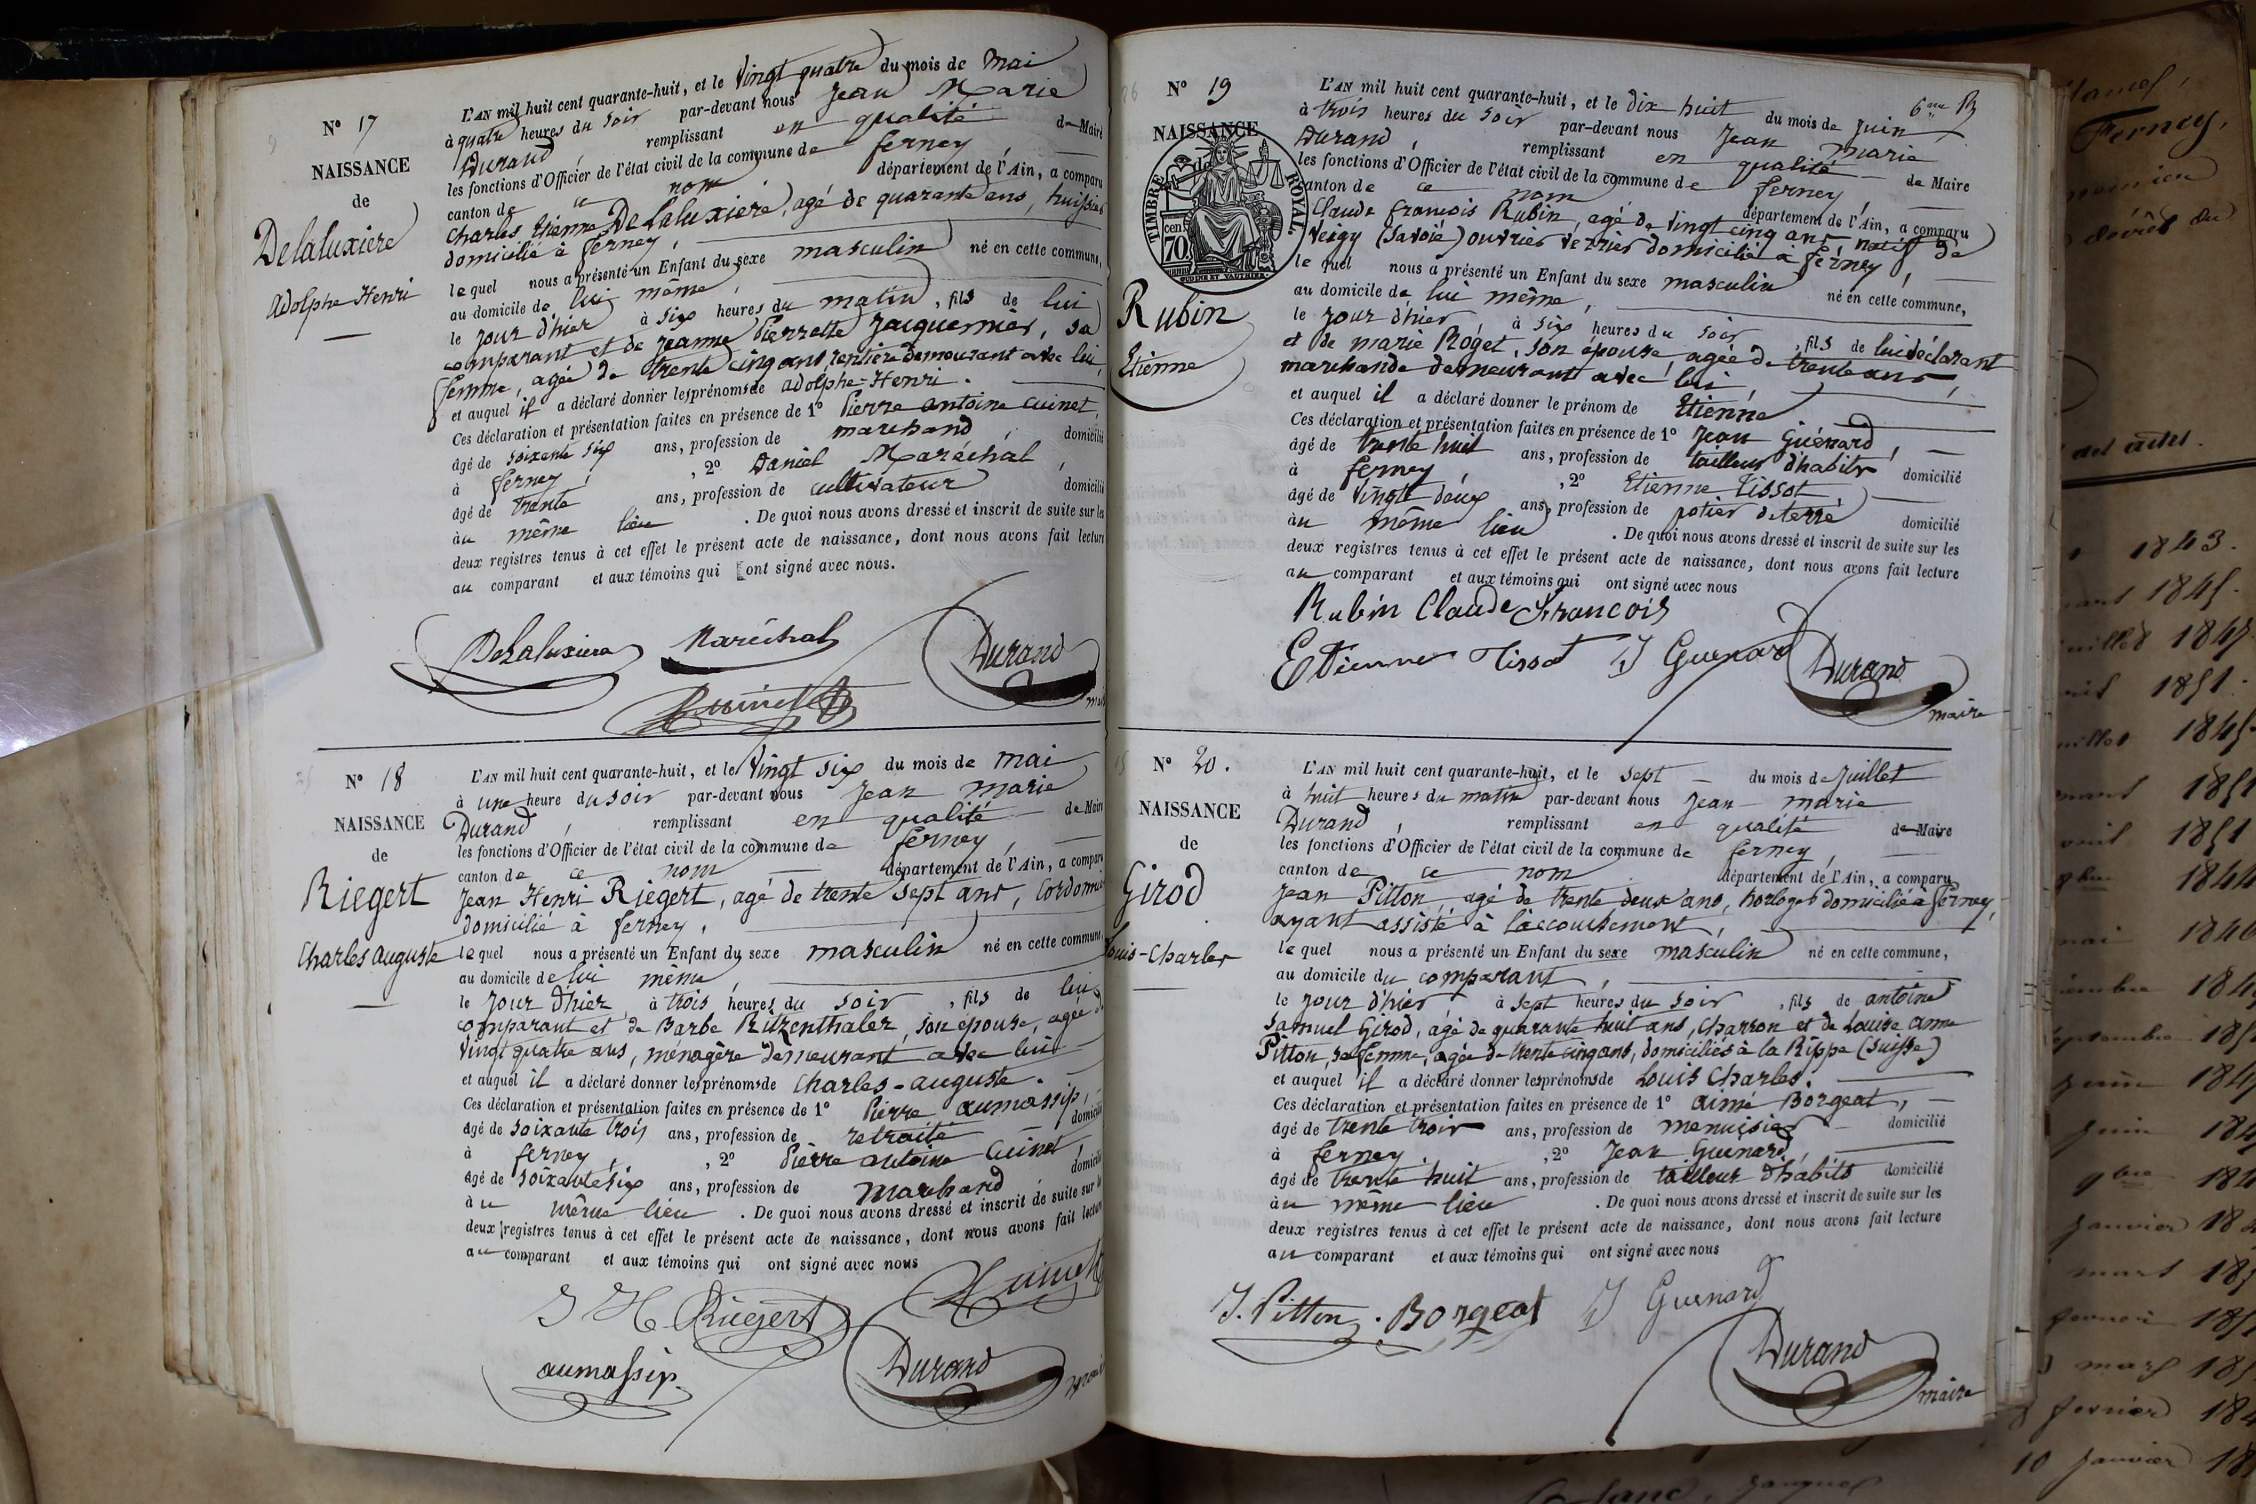 N° 17
NAISSANCE
de
Delaluxiere
Adolphe-Henri
L'AN mil huit cent quarante-huit, et le vingt quatre du mois de mai
à quatre heures du soir par-devant nous Jean Marie
Durand, remplissant en qualité de Maire
les fonctions d'Officier de l'état civil de la commune de ferney,
canton de ce nom département de l'Ain, a comparu
Charles Etienne DeLaluxiere, agé de quarante ans, huissier
domicilié à ferney,
lequel nous a présenté un Enfant du sexe masculin né en cette commune,
au domicile de lui même,
le jour d'hier à six heures du matin, fils de lui
comparant et de jeanne Pierrette jacquemier, sa
femme, agée de trente cinq ans, rentière demeurant avec lui,
et auquel il a déclaré donner les prénoms de adolphe-Henri.
Ces déclaration et présentation faites en présence de 1° Pierre antoine cuinet,
âgé de soixante six ans, profession de marchand, domicilié
à ferney, 2° Daniel Maréchal,
âgé de trente ans, profession de cultivateur domicilié
au même lieu. De quoi nous avons dressé et inscrit de suite sur les
deux registres tenus à cet effet le présent acte de naissance, dont nous avons fait lecture
au comparant et aux témoins qui ont signé avec nous.
DeLaluxiere Maréchal Durand
Cuinet
N° 18
NAISSANCE
de
Riegert
Charles auguste
L'AN mil huit cent quarante-huit, et le vingt six du mois de mai
à une heure du soir par-devant nous Jean marie
Durand, remplissant en qualité de Maire
les fonctions d'Officier de l'état civil de la commune de ferney,
canton de ce nom département de l'Ain, a comparu
Jean Henri Riegert, agé de trente sept ans, Cordonnier
domicilié à ferney,
lequel nous a présenté un Enfant du sexe masculin né en cette commune,
au domicile de lui même,
le jour d'hier à trois heures du soir, fils de lui
comparant et de Barbe Ritzenthaler, son épouse, agée de
vingt quatre ans, ménagère demeurant avec lui
et auquel il a déclaré donner les prénoms de Charles-auguste.
Ces déclaration et présentation faites en présence de 1° Pierre aumassip,
âgé de soixante trois ans, profession de retraité domicilié
à ferney, 2° Pierre antoine Cuinet,
âgé de soixante six ans, profession de marchand domicilié
au même lieu. De quoi nous avons dressé et inscrit de suite sur les
deux registres tenus à cet effet le présent acte de naissance, dont nous avons fait lecture
au comparant et aux témoins qui ont signé avec nous
J H Riegert Cuinet
aumassip Durand
N° 19
NAISSANCE
TIMBRE ROYAL
70
cen
Rubin
Etienne
L'AN mil huit cent quarante-huit, et le dix huit du mois de juin
à trois heures du soir par-devant nous Jean Marie
Durand, remplissant en qualité de Maire
les fonctions d'Officier de l'état civil de la commune de ferney
canton de ce nom département de l'Ain, a comparu
Claude françois Rubin, agé de vingt cinq ans, natif de
Veigy (Savoie) ouvrier verrier domicilié à ferney,
lequel nous a présenté un Enfant du sexe masculin né en cette commune,
au domicile de lui même,
le jour d'hier à six heures du soir, fils de lui déclarant
et de marie Roget, son épouse, agée de trente ans,
marchande demeurant avec lui,
et auquel il a déclaré donner le prénom de Etienne
Ces déclaration et présentation faites en présence de 1° Jean Guénard,
âgé de trente huit ans, profession de tailleur d'habits domicilié
à ferney, 2° Etienne Tissot,
âgé de vingt deux ans, profession de potier de terre domicilié
au même lieu. De quoi nous avons dressé et inscrit de suite sur les
deux registres tenus à cet effet le présent acte de naissance, dont nous avons fait lecture
au comparant et aux témoins qui ont signé avec nous
Rubin Claude François
Etienne Tissot J Guenard Durand
maire
N° 20.
NAISSANCE
de
Girod
Louis-Charles
L'AN mil huit cent quarante-huit, et le sept du mois de juillet
à huit heures du matin par-devant nous Jean marie
Durand, remplissant en qualité de Maire
les fonctions d'Officier de l'état civil de la commune de ferney,
canton de ce nom département de l'Ain, a comparu
Jean Pitton, agé de trente deux ans, horloger domicilié à ferney,
ayant assisté à l'accouchement,
lequel nous a présenté un Enfant du sexe masculin né en cette commune,
au domicile du comparant,
le jour d'hier à sept heures du soir, fils de antoine
Samuel Girod, agé de quarante huit ans, Charron et de Louise anne
Pitton, sa femme, agée de trente cinq ans, domiciliés à la Rippe (Suisse)
et auquel il a déclaré donner les prénoms de Louis Charles.
Ces déclaration et présentation faites en présence de 1° aimé Borgeat,
âgé de trente trois ans, profession de menuisier domicilié
à ferney, 2° Jean Guenard,
âgé de trente huit ans, profession de tailleur d'habits domicilié
au même lieu. De quoi nous avons dressé et inscrit de suite sur les
deux registres tenus à cet effet le présent acte de naissance, dont nous avons fait lecture
au comparant et aux témoins qui ont signé avec nous
J. Pitton. Borgeat J Guenard
Durand
maire
Ferney,
1843.
1845.
1851
1851
1851
1844
janvier
mars
mars
fevrier
10 janvier